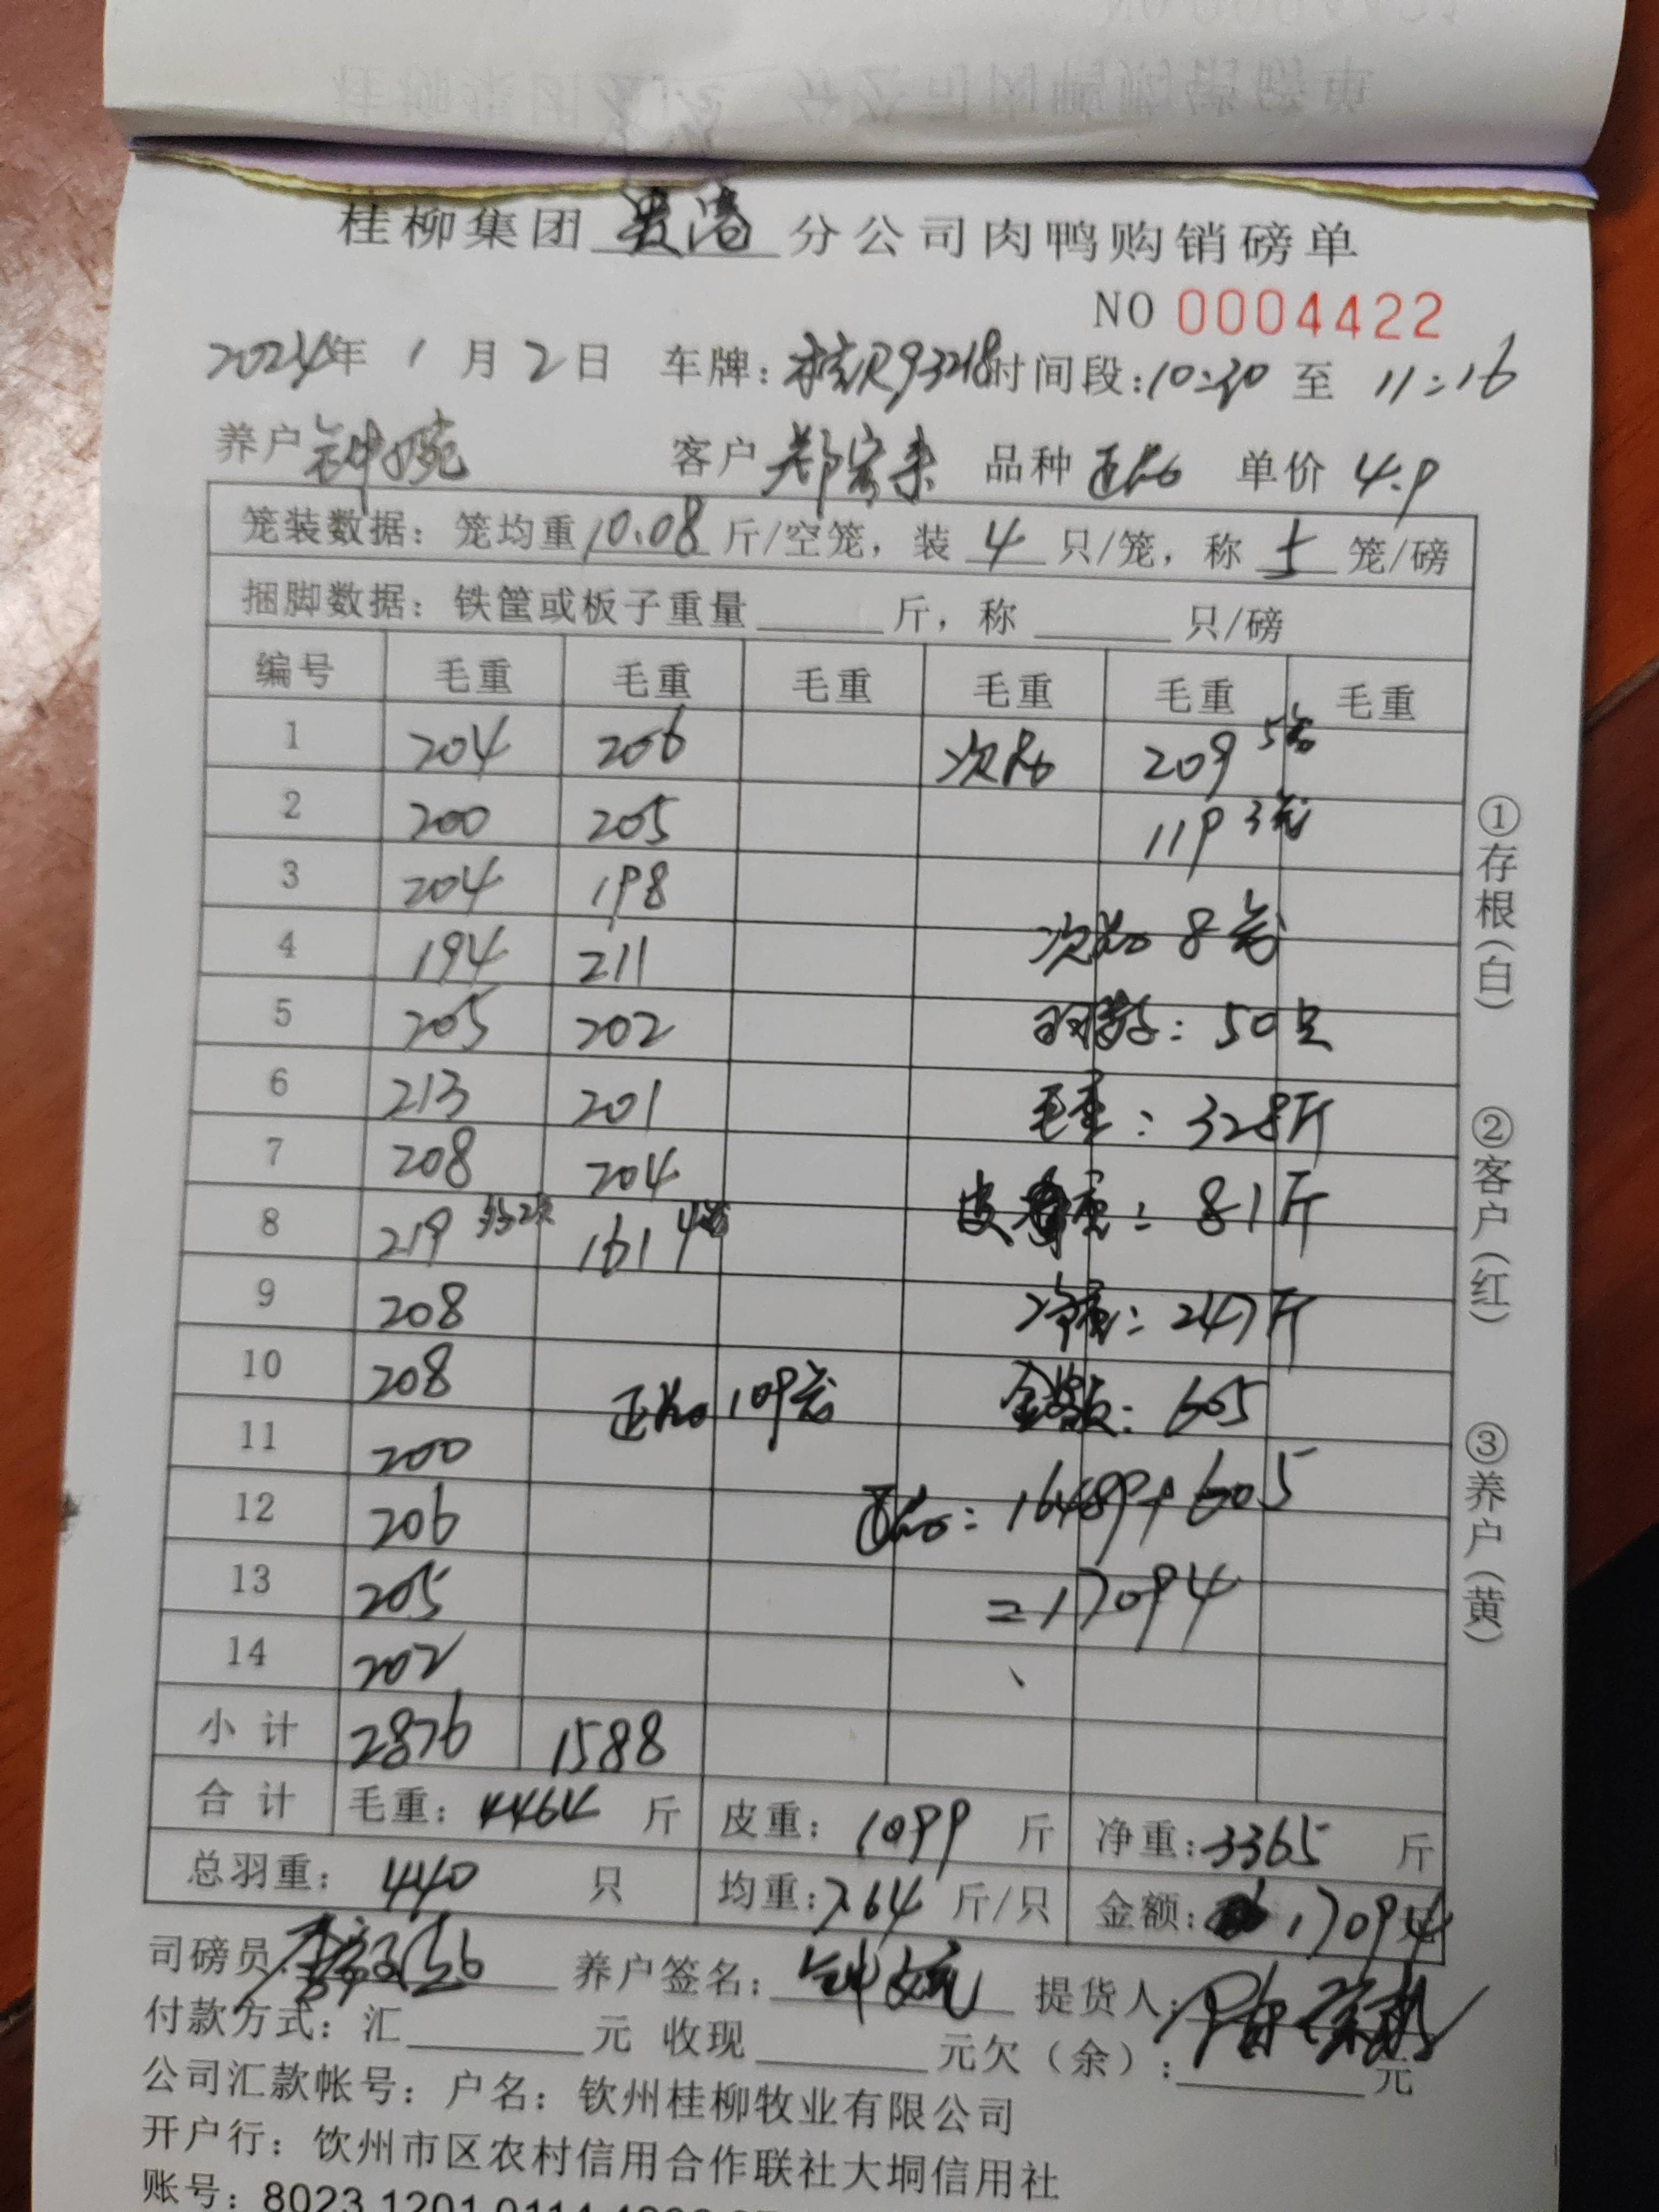 桂柳集团 贵港 分公司肉鸭购销磅单
NO 0004422
2024年 1 月 2 日 车牌：桂R93218 时间段：10:30 至 11:16
养户 钟婉 客户 郑宗来 品种 正品 单价 4.9
笼装数据：笼均重 10.08 斤/空笼，装 4 只/笼，称 5 笼/磅
捆脚数据：铁筐或板子重量______斤，称______只/磅
编号 毛重 毛重 毛重 毛重 毛重 毛重
1 204 206 次品 209 5笼
2 200 205 119 3笼
3 204 198
4 194 211 次品 8笼
5 205 202 羽数：50只
6 213 201 毛重：328斤
7 208 204 皮重：81斤
8 219 161 4笼
9 208 净重：247斤
10 208 正品 109笼 金额：605
11 200
12 206 正品：16489+605
13 205 =17094
14 202
小计 2876 1588
合计 毛重：4464 斤 皮重：1099 斤 净重：3365 斤
总羽重：440 只 均重：7.64 斤/只 金额：17094元
司磅员： 养户签名：钟婉 提货人：
付款方式：汇______元 收现______元欠（余）：______元
公司汇款帐号：户名：钦州桂柳牧业有限公司
开户行：钦州市区农村信用合作联社大垌信用社
账号：8023 1201 0114
①存根（白）
②客户（红）
③养户（黄）